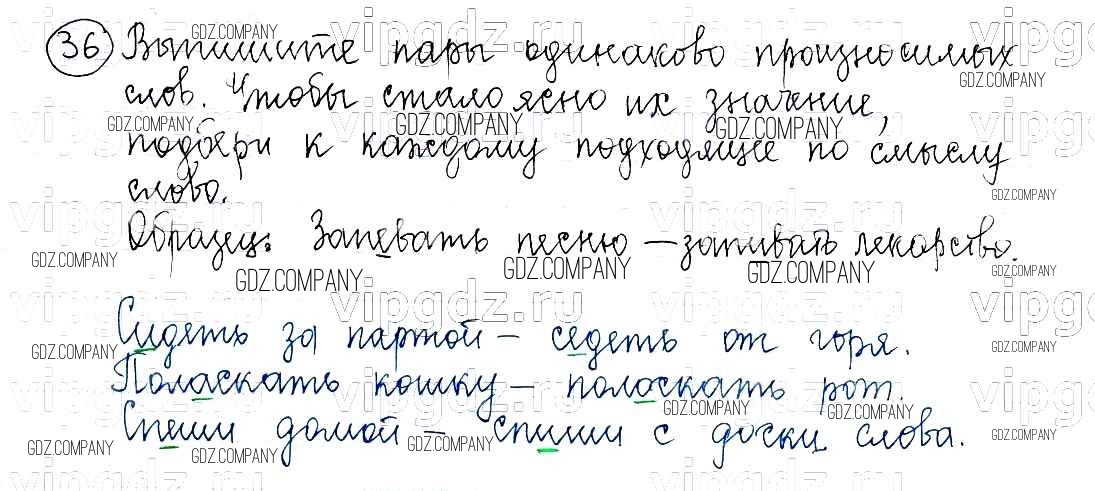 36 Выпишите пары одинаково произносимых
слов. Чтобы стало ясно их значение,
подбери к каждому подходящие по смыслу
слова.
Образец: Запевать песню – запивать лекарство.
Сидеть за партой – седеть от горя.
Поласкать кошку – полоскать рот.
Спеши домой – спиши с доски слова.
vipgdz.ru
GDZ.COMPANY